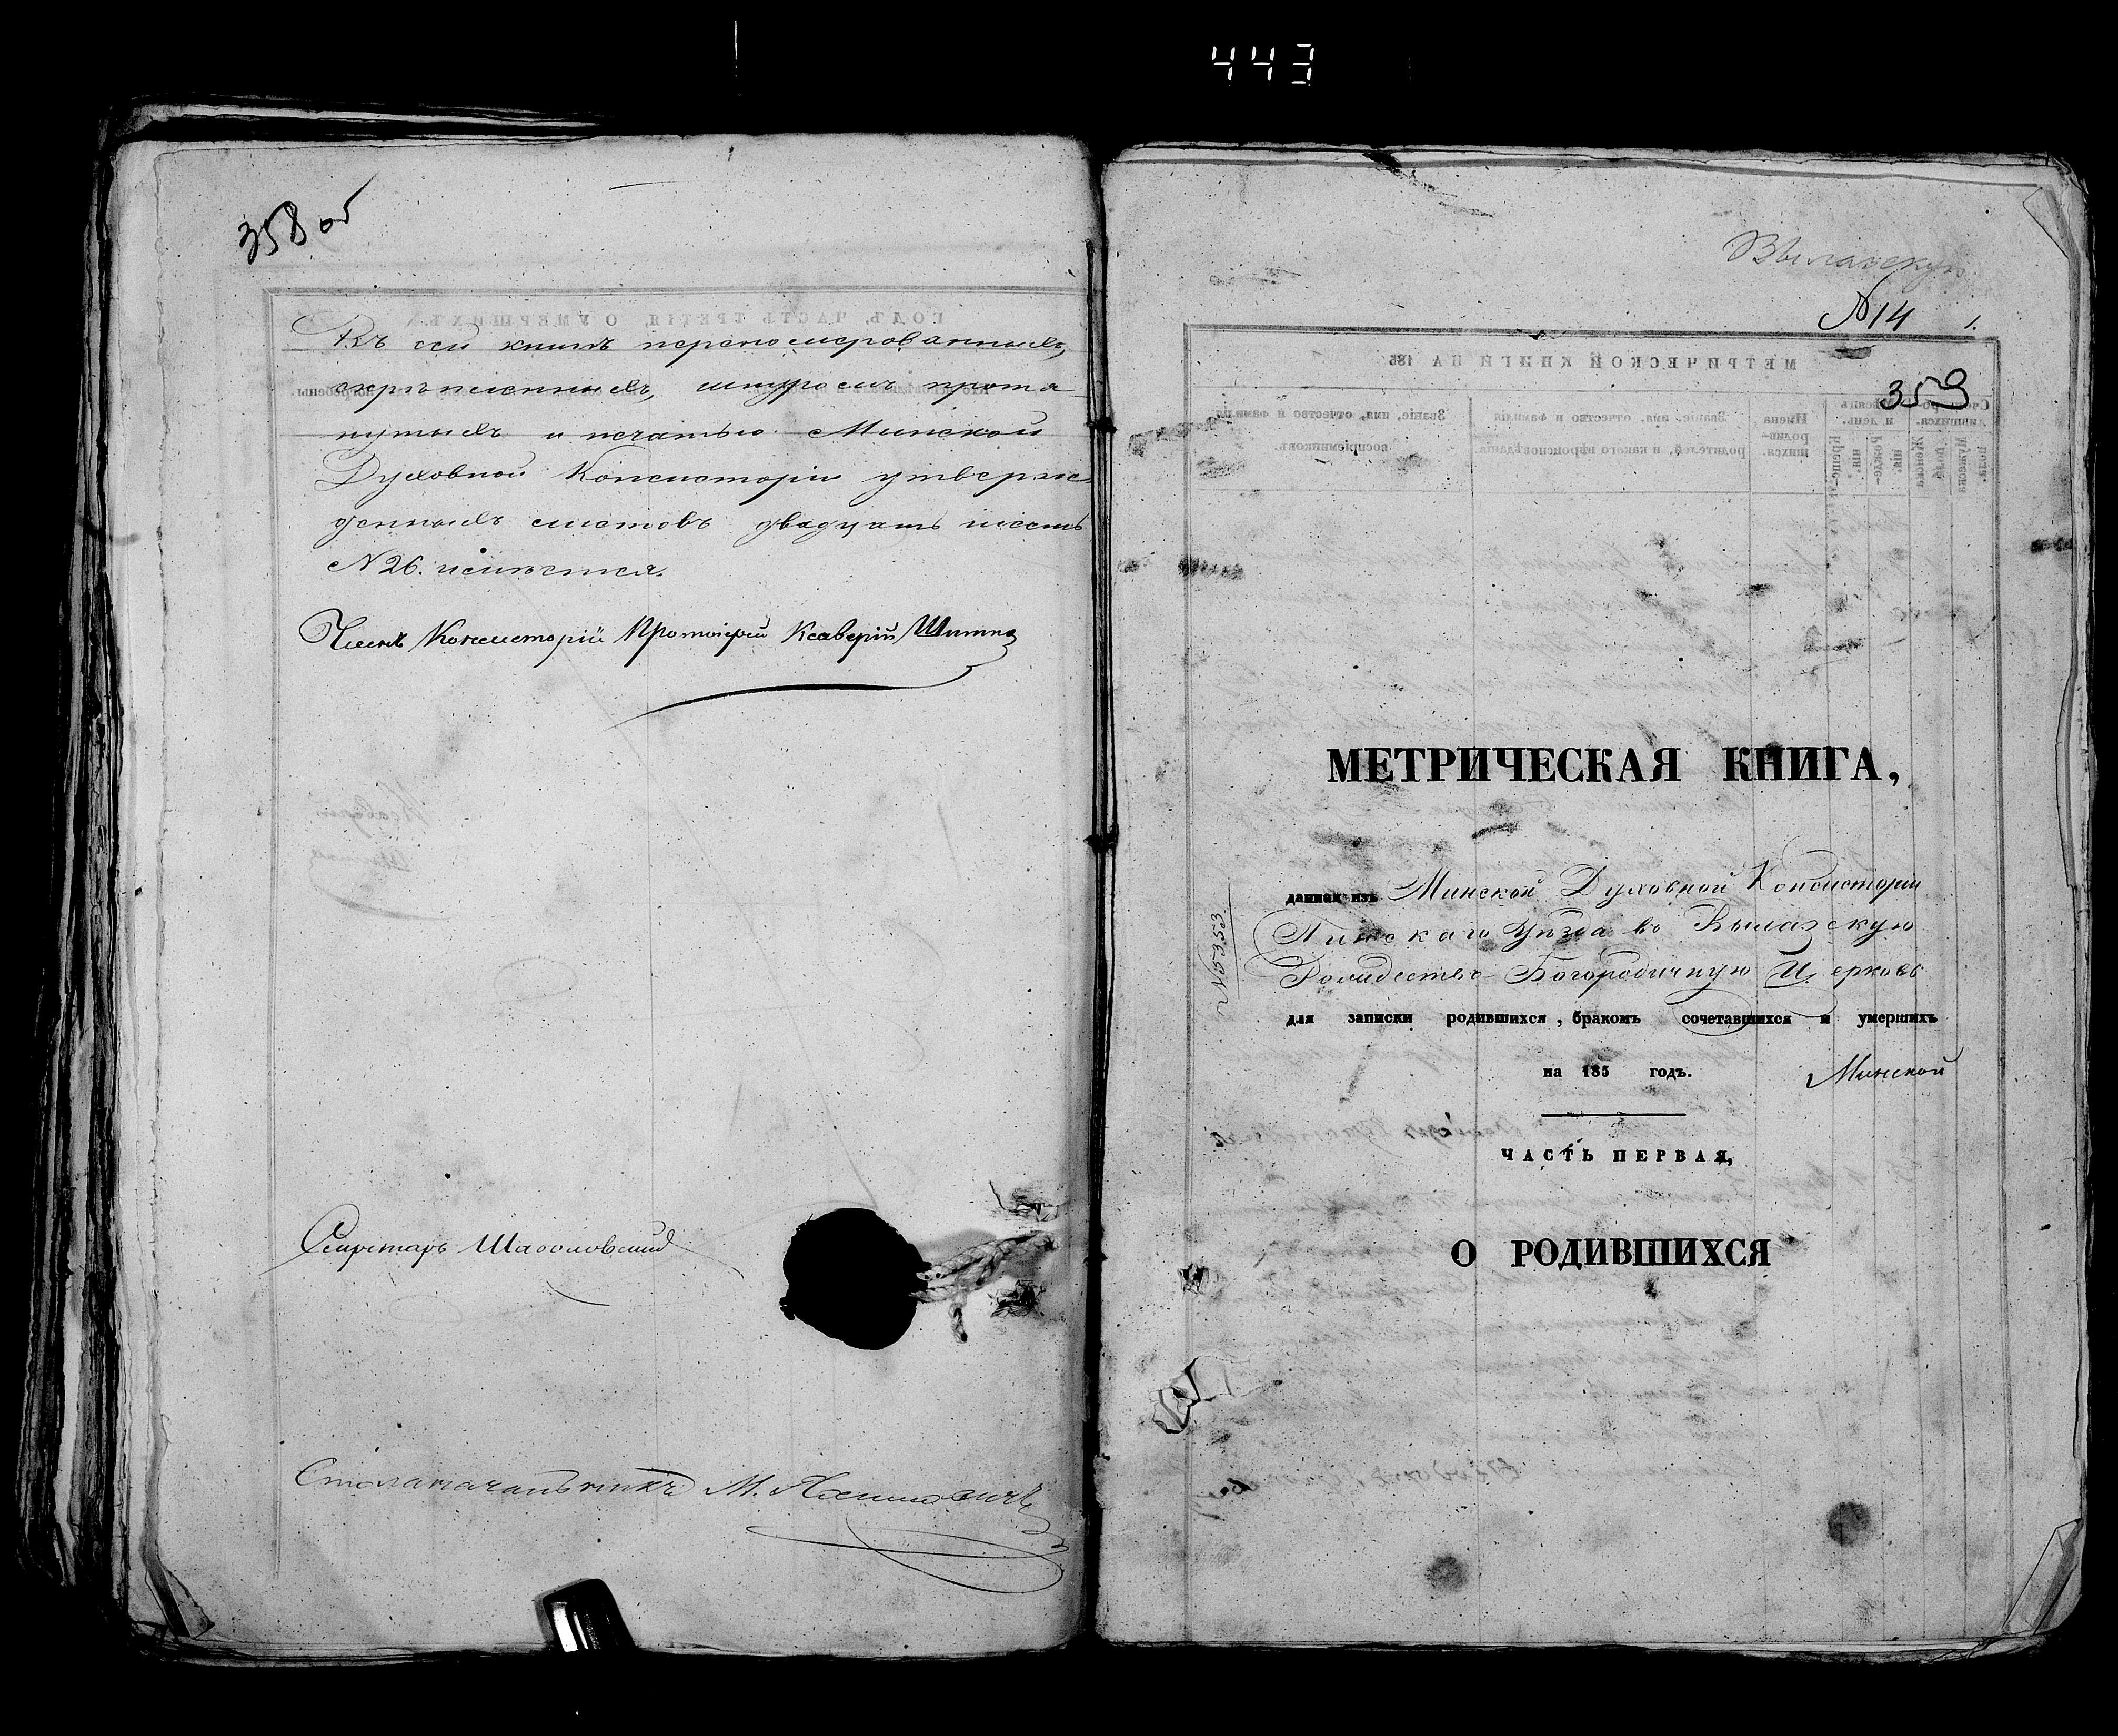 443
358 об
Въ сей книгѣ перенумерованныхъ,
скрѣпленныхъ, шнуромъ протя-
нутыхъ и печатью Минской
Духовной Консисторіи утверж-
денныхъ листовъ двадцать шесть
N 26. имѣется.
Членъ Консисторіи Протоіерей Ксаверій
Секретарь
Столоначальникъ М.
Вылазскую
N 14 1.
359
МЕТРИЧЕСКАЯ КНИГА,
данная изъ Минской Духовной Консисторіи
Пинскаго Уѣзда въ Вылазскую
Рождество-Богородичную Церковь
для записки родившихся, бракомъ сочетавшихся и умершихъ
на 185 годъ. Минской
N 5353
ЧАСТЬ ПЕРВАЯ,
О РОДИВШИХСЯ